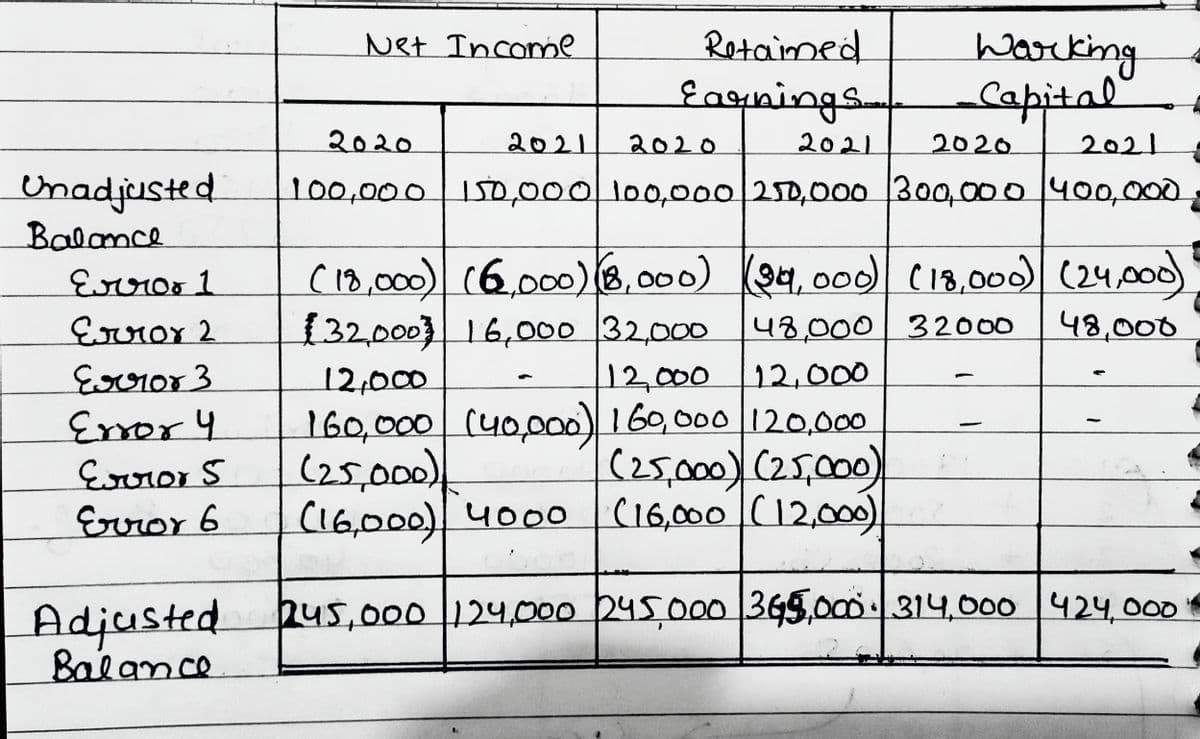 Net Income Retained Working
Earnings Capital
2020 2021 2020 2021 2020 2021
Unadjusted 100,000 150,000 100,000 250,000 300,000 400,000
Balance
Error 1 (18,000) (6,000) (18,000) (24,000) (18,000) (24,000)
Error 2 {32,000} 16,000 32,000 48,000 32000 48,000
Error 3 12,000 - 12,000 12,000 - -
Error 4 160,000 (40,000) 160,000 120,000 - -
Error 5 (25,000) (25,000) (25,000)
Error 6 (16,000) 4000 (16,000 (12,000)
Adjusted 245,000 124,000 245,000 369,000 314,000 424,000
Balance